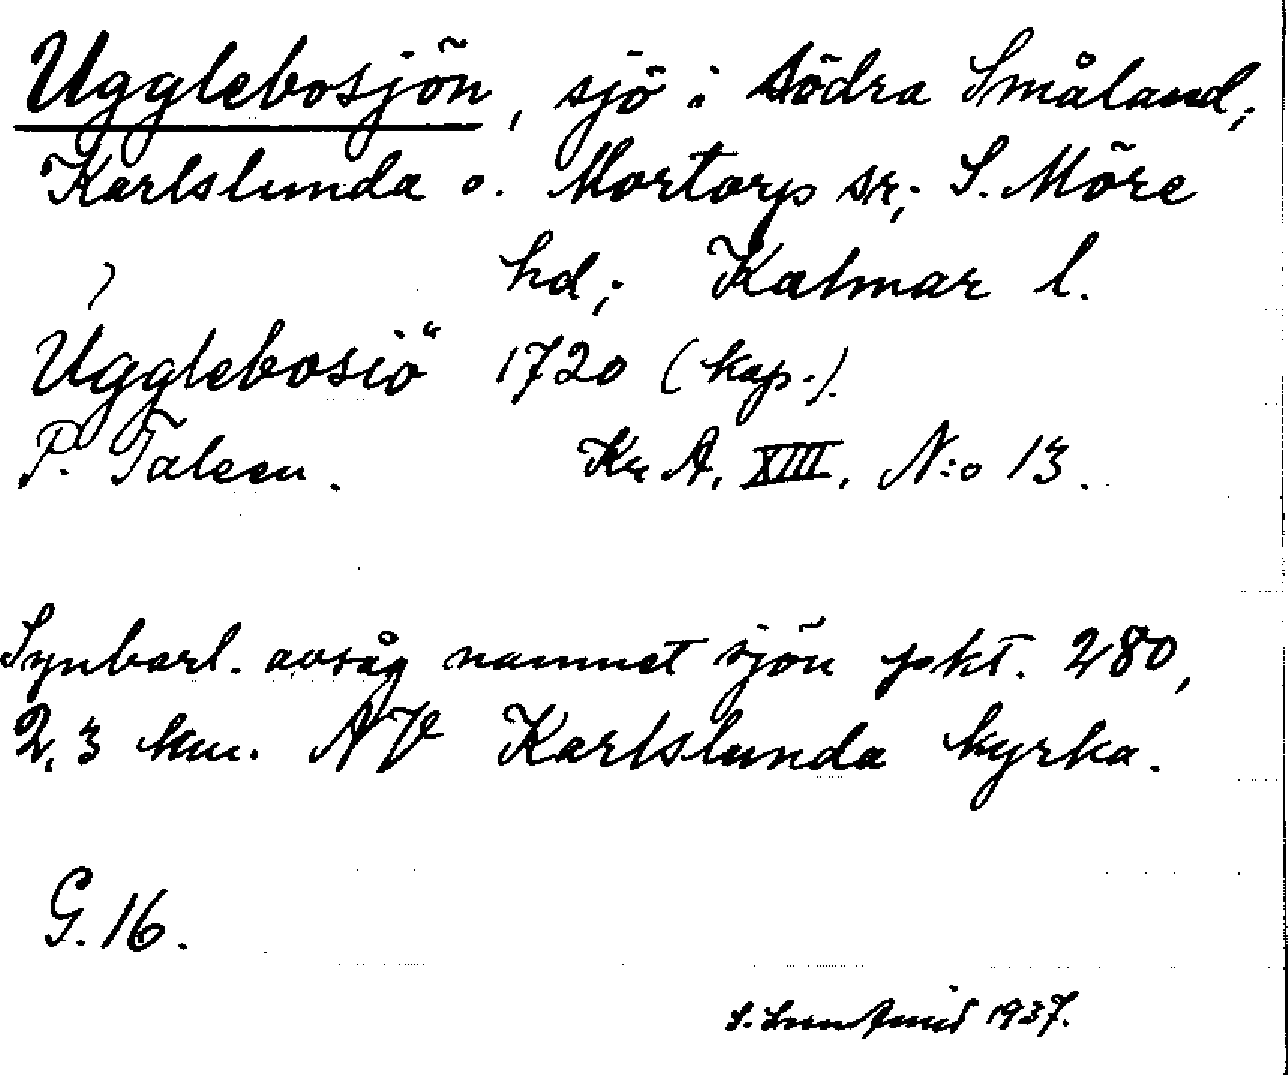 Ugglebosjön, sjö i södra Småland,
Karlslunda o. Mortorp sr; S. Möre
hd; Kalmar l.
Ugglebosiö" 1720 (kap.).
P. Taleen. Kr A. XIII. N:o 13.
Synbarl. avsåg namnet sjön pkt. 280,
2,3 km. NV Karlslunda kyrka.
G. 16.
S. 1937.